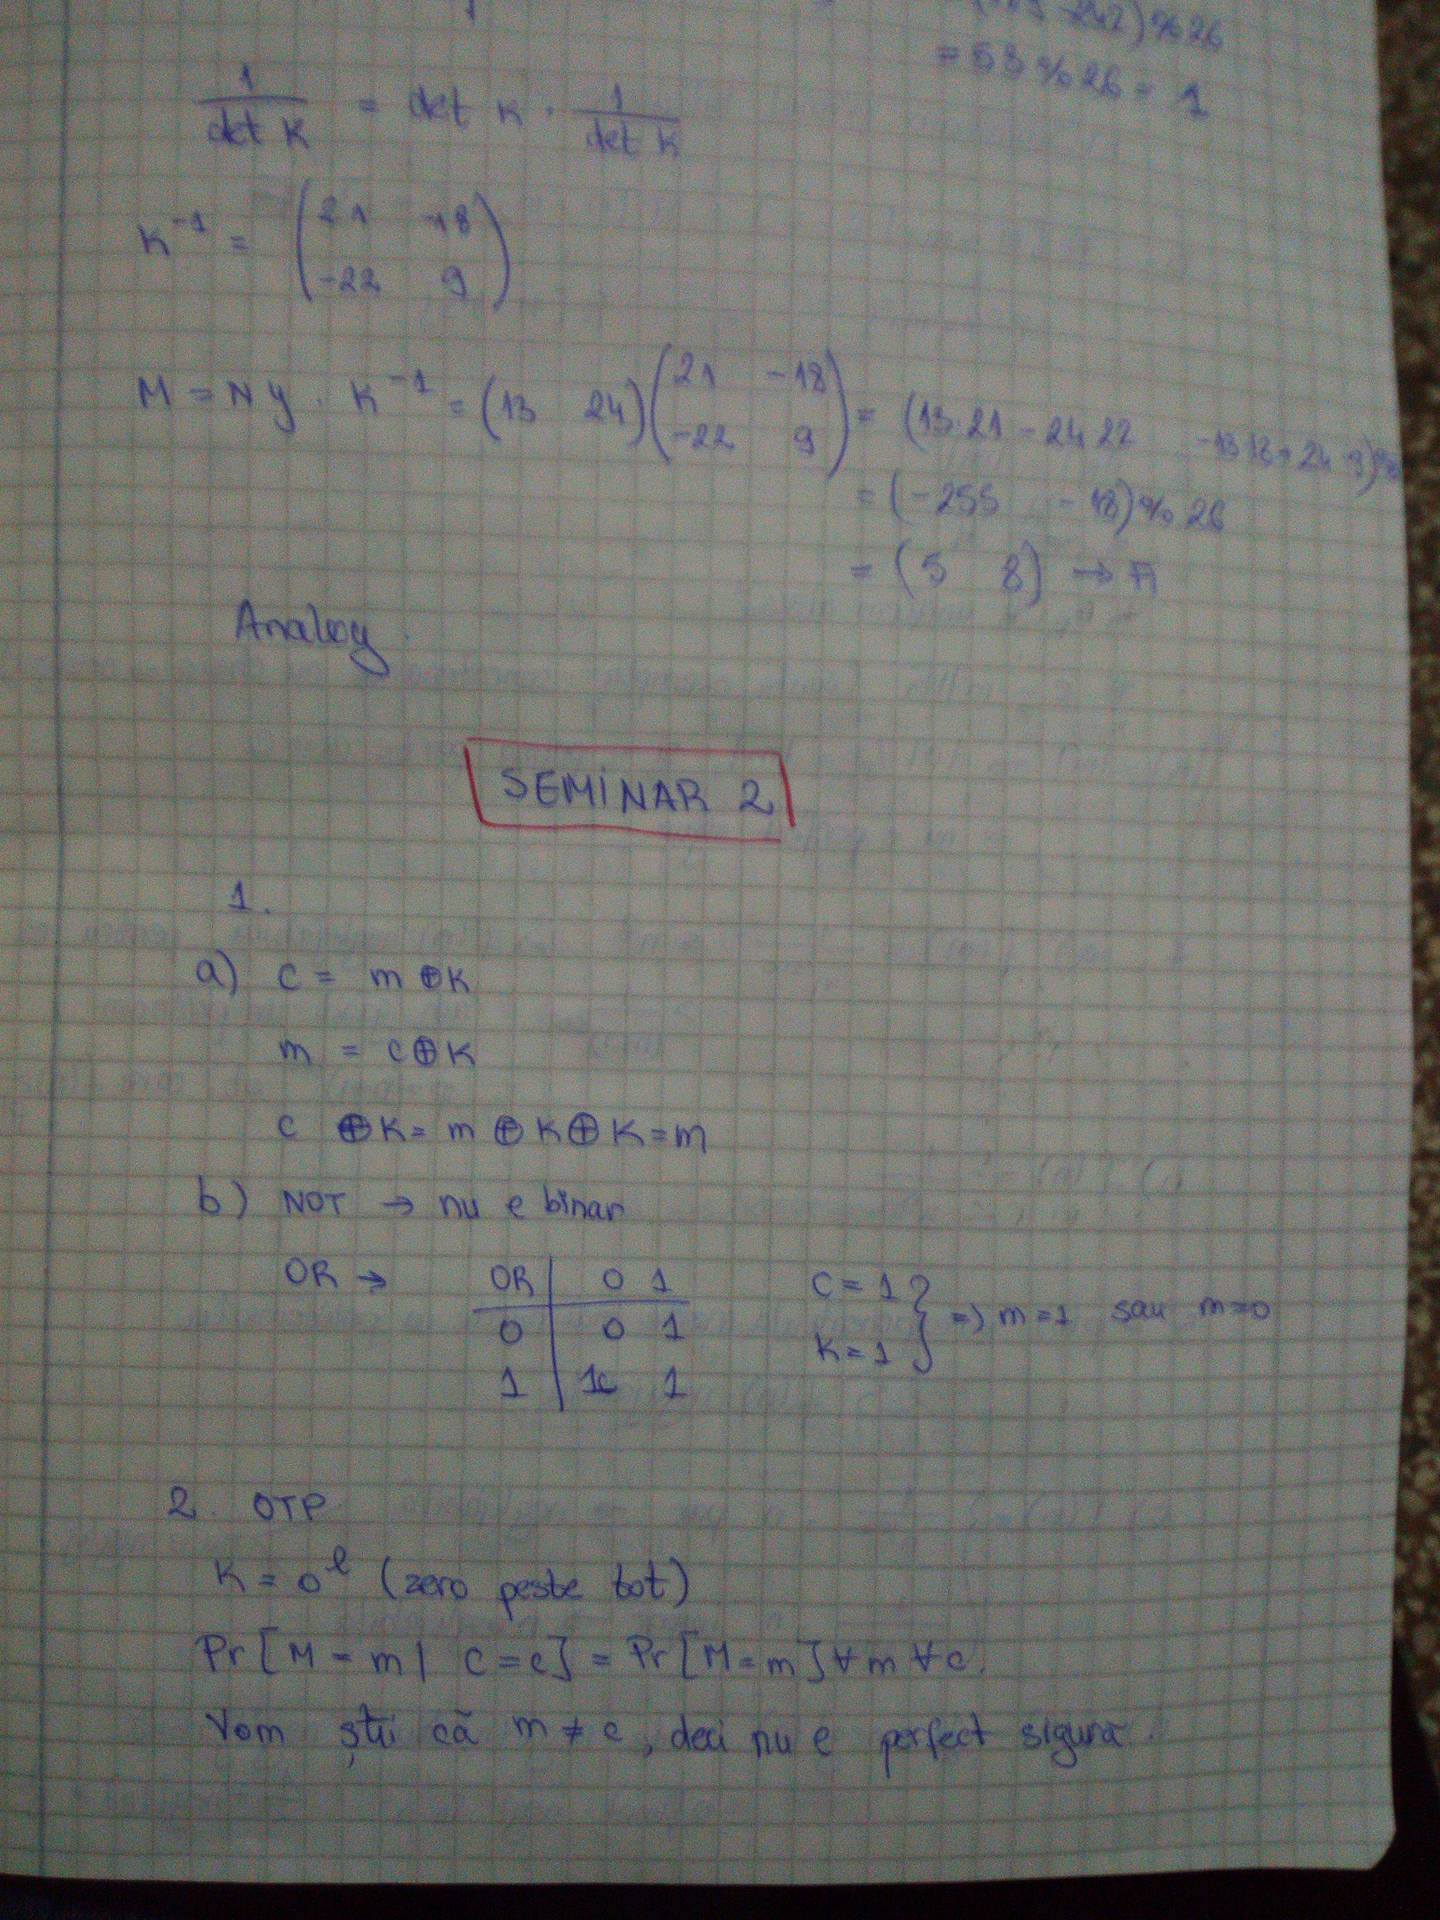 -242)%26
= 53%26 = 1
1/det K = det K · 1/det K
K^-1 = (21 -18
-22 9)
M = NY · K^-1 = (13 24)(21 -18
-22 9) = (13·21 - 24 22 -13 18 + 24 9)%
= (-255 -18)%26
= (5 8) → FI
Analog.
SEMINAR 2
1.
a) c = m ⊕ K
m = c ⊕ K
c ⊕ K = m ⊕ K ⊕ K = m
b) NOT → nu e binar
OR → OR | 0 1
0 | 0 1
1 | 1 1
c = 1
K = 1 } => m = 1 sau m = 0
2. OTP
K = 0^l (zero peste tot)
Pr[M = m | C = c] = Pr[M = m] ∀m ∀c.
Vom ști că m ≠ c, deci nu e perfect sigură.